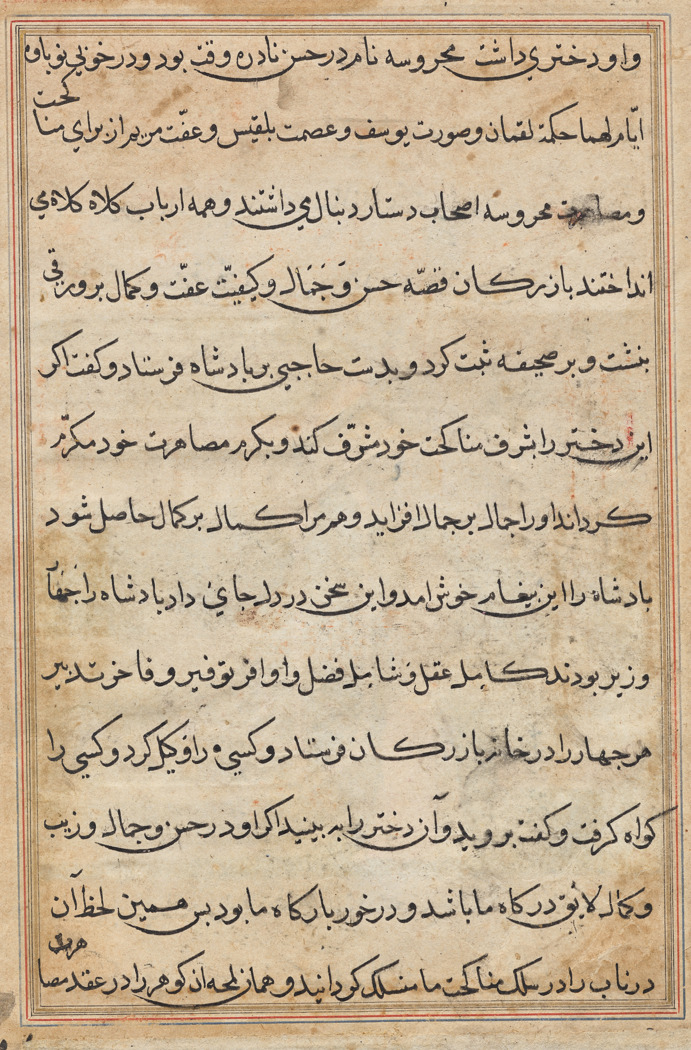 و او دختري داشت محروسه نام در حسن نادره وقت بود و در خوبي نوباوه
ايّام لهما حكمة لقمان و صورت يوسف و عصمت بلقيس و عفّت مريم از براي مناكحت
و مصاهرت محروسه اصحاب دستار دنبال مي داشتند و همه ارباب كلاه كلاه مي
انداختند بازركان قصّه حسن وَ جَمَال و كيفيّت عفّت و كمال بر ورقي
بنشت و بر صحيفه ثبت كرد و بدست حاجبي بر بادشاه فرستاد و كفت اكر
اين دختر را شرف مناكحت خود مشرّف كند و بكرم مصاهرت خود مكرّم
كرداند او را جمال بر جمال افزايد و هم مرا كمال بر كمال حاصل شود
بادشاه را اين بيغام خوش امد و اين سخن در دل جاي داد بادشاه را جهار
وزير بودند كامل عقل و شامل فضل و او افر توفير و فاخر تدبير
هر جهار را در خانه بازركان فرستاد و كسي را وكيل كرد و كسي را
كواه كرفت و كفت برويد و آن دختر را به بينيد اكر او در حسن و جمال و زيب
و كمال لايق دركاه ما باشد و در خور باركاه ما بود بس همين لحظ آن
در ناب را در سلك مناكحت ما منسلك كردانيد و همان لمحه ان كوهر را در عقد مصاهرت